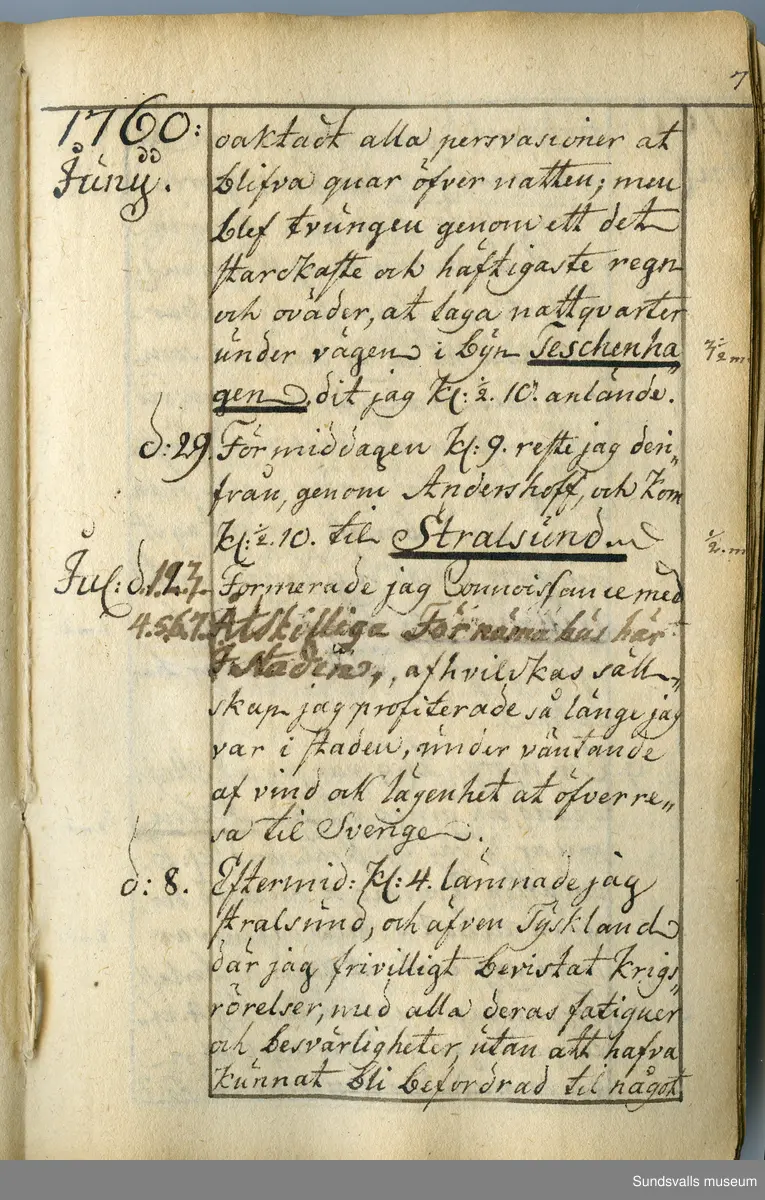 7
1760:
Junÿ.
oaktadt alla persvasioner at
blifva quar öfver natten; men
blef tvungen genom ett det
starckaste och häftigaste regn
och oväder, at taga nattqvarter
under vägen i byn Teschenha„
gen, dit jag kl: ½. 10. anlände.
½ m.
d: 29. Förmiddagen kl: 9. reste jag den„
från, genom Andershoff, och kom
kl: ½. 10. til Stralsund
½. m
Jul: d. 1. 2. 3. Formerade jag Connoissance med
4. 5. 6. 7. Atskilliga Förnäma hus här
I Staden, af hvilckas säll„
skap jag profiterade så länge jag
var i staden, under väntande
af vind och lägenhet at öfverre„
sa til Sverige.
d: 8. Eftermid: kl: 4. lämnade jag
stralsund, och äfven Tyskland
där jag frivilligt bevistat Krigs„
rörelser, med alla deras fatiguer
och besvärligheter, utan att hafva
kunnat bli befordrad til något
Sundsvalls museum